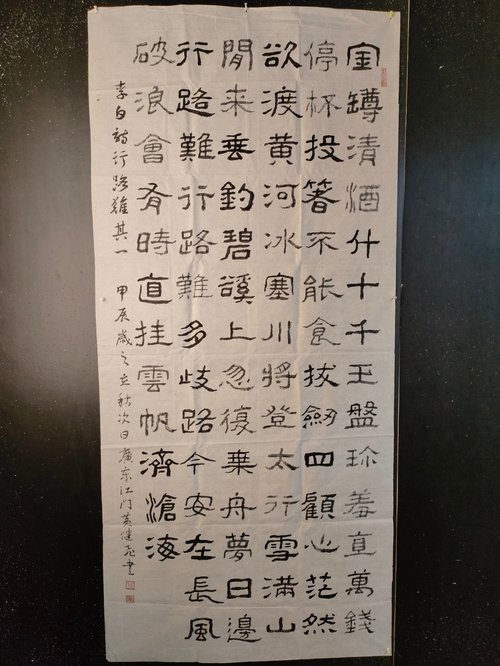 金罇清酒斗十千玉盤珎羞直萬錢
停杯投箸不能食拔劒四顧心茫然
欲渡黄河冰塞川將登太行雪滿山
閒来垂釣碧谿上忽復乗舟夢日邊
行路難行路難多歧路今安在長風
破浪會有時直挂雲帆濟滄海
李白詩行路難其一 甲辰歲之立秋次日廣东江门黄健飞書